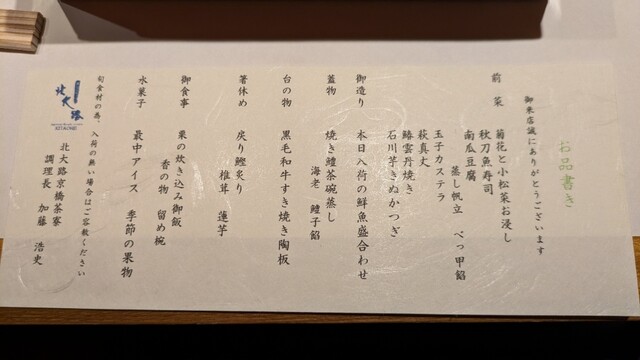 お品書き
御来店誠にありがとうございます
前菜 菊花と小松菜お浸し
秋刀魚寿司
南瓜豆腐
蒸し帆立 べっ甲餡
玉子カステラ
萩真丈
鰆雲丹焼き
石川芋きぬかつぎ
御造り 本日入荷の鮮魚盛合わせ
蓋物 焼き鱧茶碗蒸し
海老 鱧子餡
台の物 黒毛和牛すき焼き陶板
箸休め 戻り鰹炙り
椎茸 蓮芋
御食事 栗の炊き込み御飯
香の物 留め椀
水菓子 最中アイス 季節の果物
旬食材の為、入荷の無い場合はご容赦ください
北大路京橋茶寮
調理長 加藤 浩史
北大路
KITAOHJI